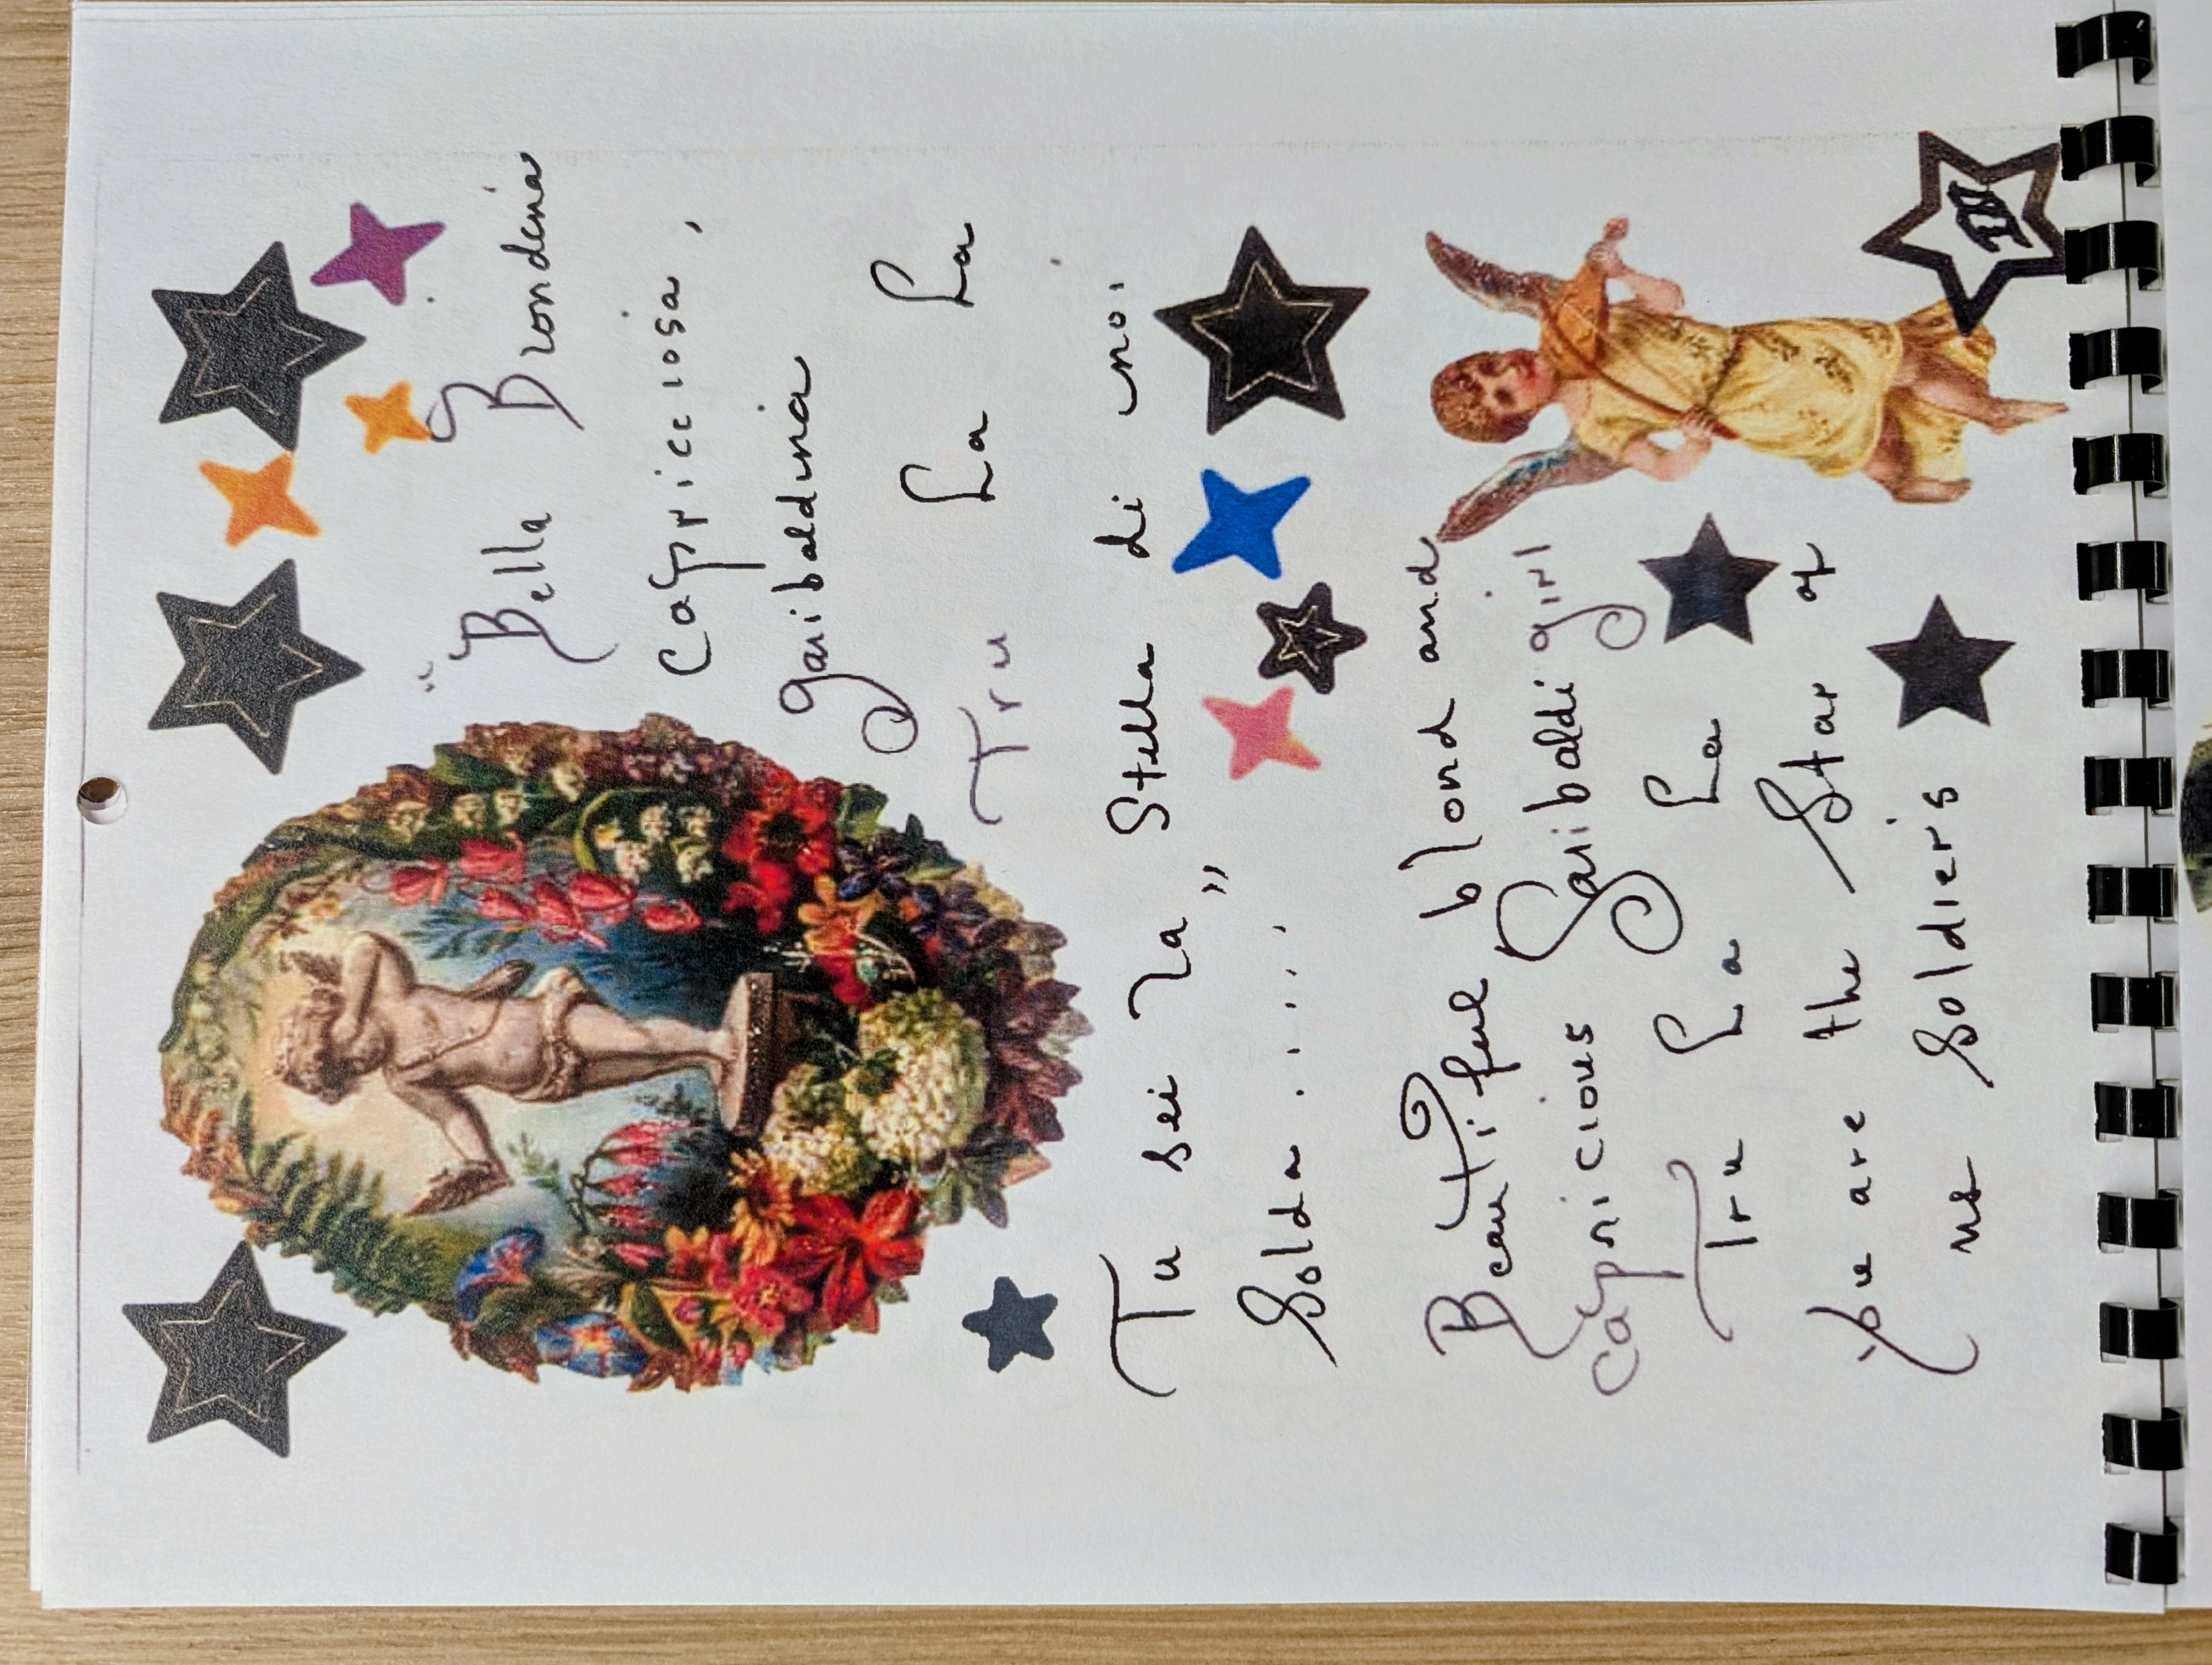 "Bella Biondina
Capricciosa,
garibaldina
Tru La La
Tu sei la Stella di noi
Solda......"
Beautiful blond and
Capricious Garibaldi girl
Tru La La
You are the Star of
us Soldiers